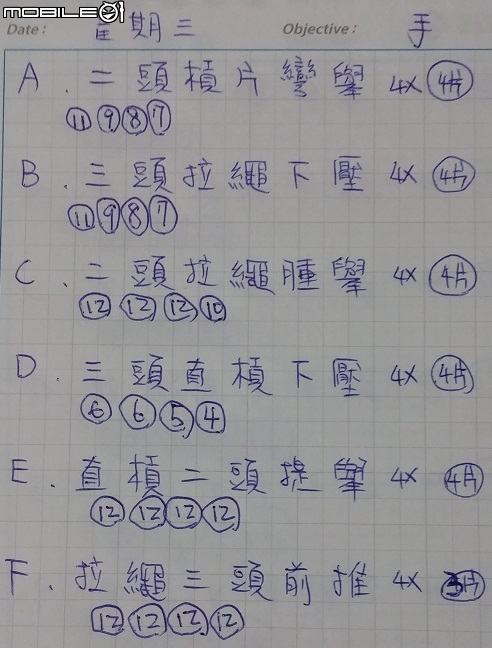 MOBILE01
Date: 星期三 Objective: 手
A. 二頭槓片彎舉 4x ④片
⑪⑨⑧⑦
B. 三頭拉繩下壓 4x 4片
⑪⑨⑧⑦
C. 二頭拉繩腫舉 4x 4片
⑫⑫⑫⑩
D. 三頭直槓下壓 4x 4片
⑥⑥⑤④
E. 直槓二頭提舉 4x 4片
⑫⑫⑫⑫
F. 拉繩三頭前推 4x 3片
⑫⑫⑫⑫